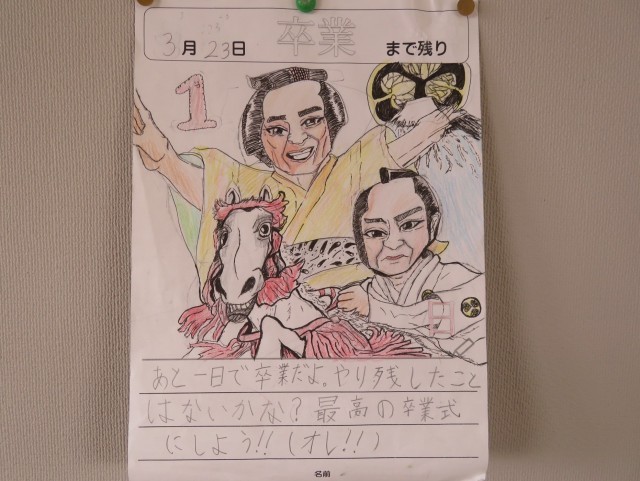 3月23日 卒業 まで残り
1
日
あと一日で卒業だよ。やり残したこと
はないかな?最高の卒業式
にしよう!!(オレ!!)
名前